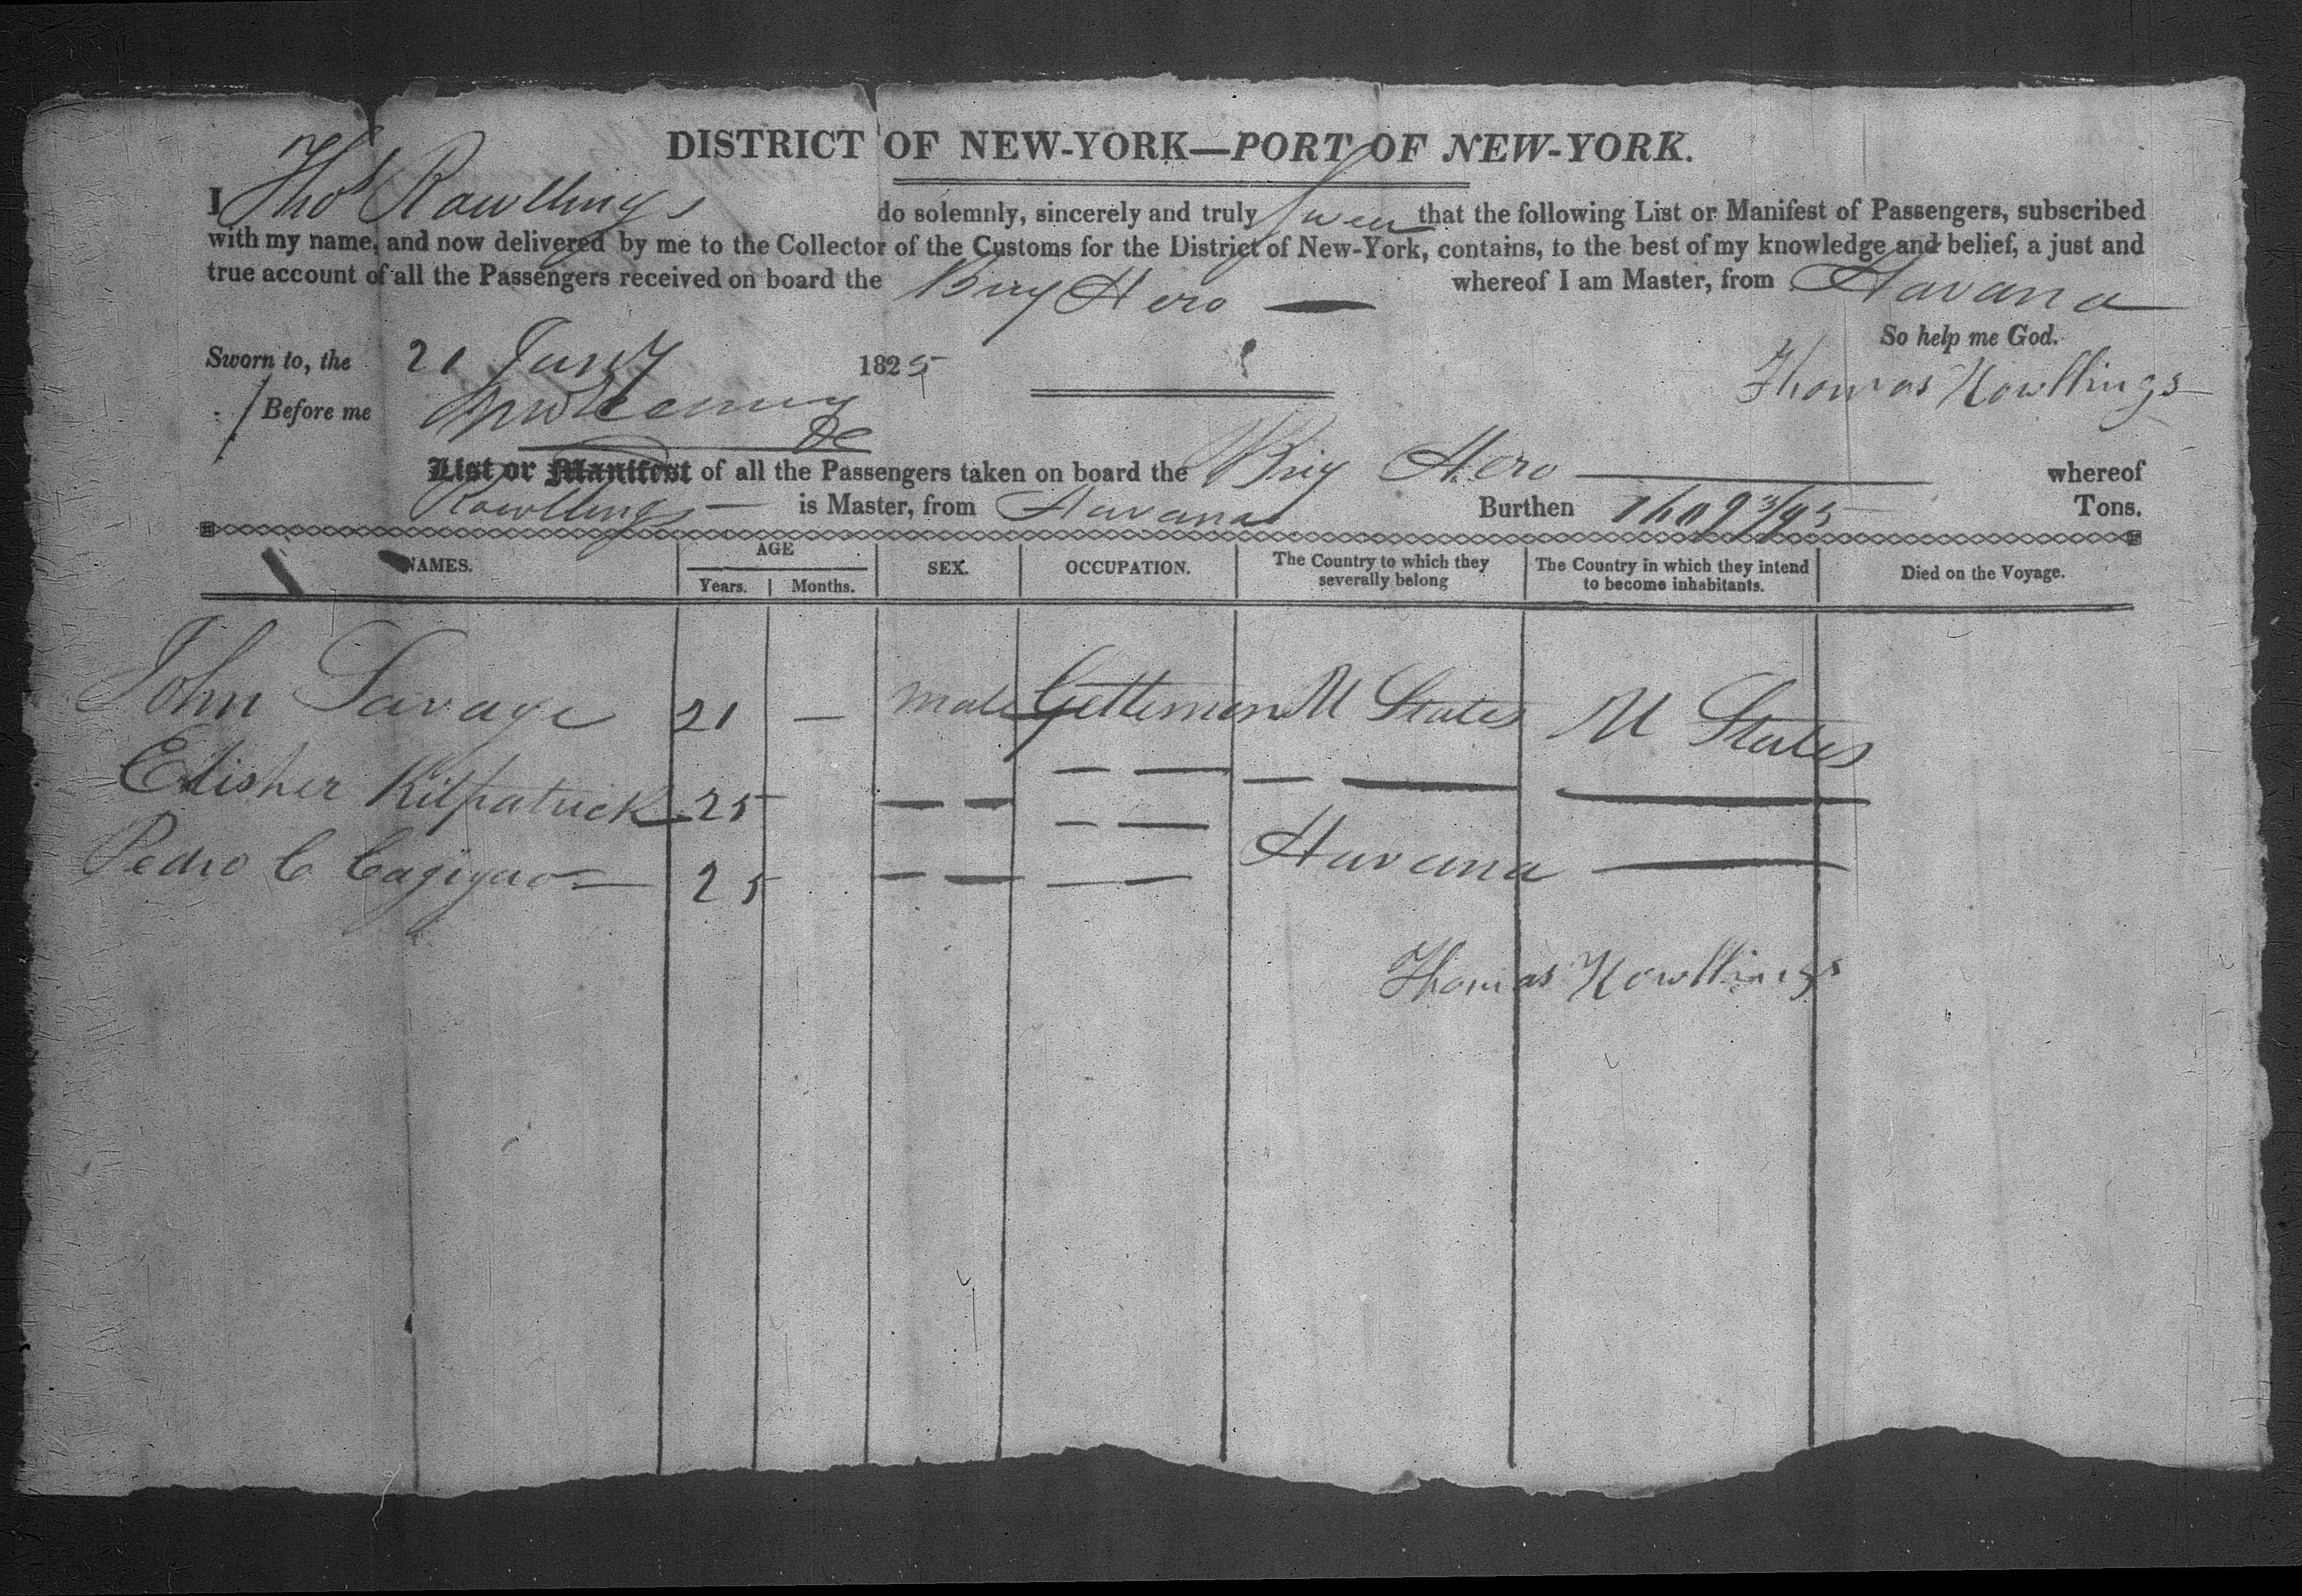 DISTRICT OF NEW-YORK—PORT OF NEW-YORK.
I Thos Rawllings do solemnly, sincerely and truly Swear that the following List or Manifest of Passengers, subscribed
with my name, and now delivered by me to the Collector of the Customs for the District of New-York, contains, to the best of my knowledge and belief, a just and
true account of all the Passengers received on board the Brig Hero whereof I am Master, from Havana
So help me God.
Sworn to, the 21 Jany 1825 Thomas Rowllings
Before me
List or Manifest of all the Passengers taken on board the Brig Hero whereof
Rawllings is Master, from Havana Burthen Tons.
NAMES. AGE Years. Months. SEX. OCCUPATION. The Country to which they severally belong The Country in which they intend to become inhabitants. Died on the Voyage.
John Savage 21 — male Gettlemen U States U States
Elisher Kilpatrick 25 — — — — — — —
— —
Pedro C 25 — — — — Havana —
Thomas Rowllings